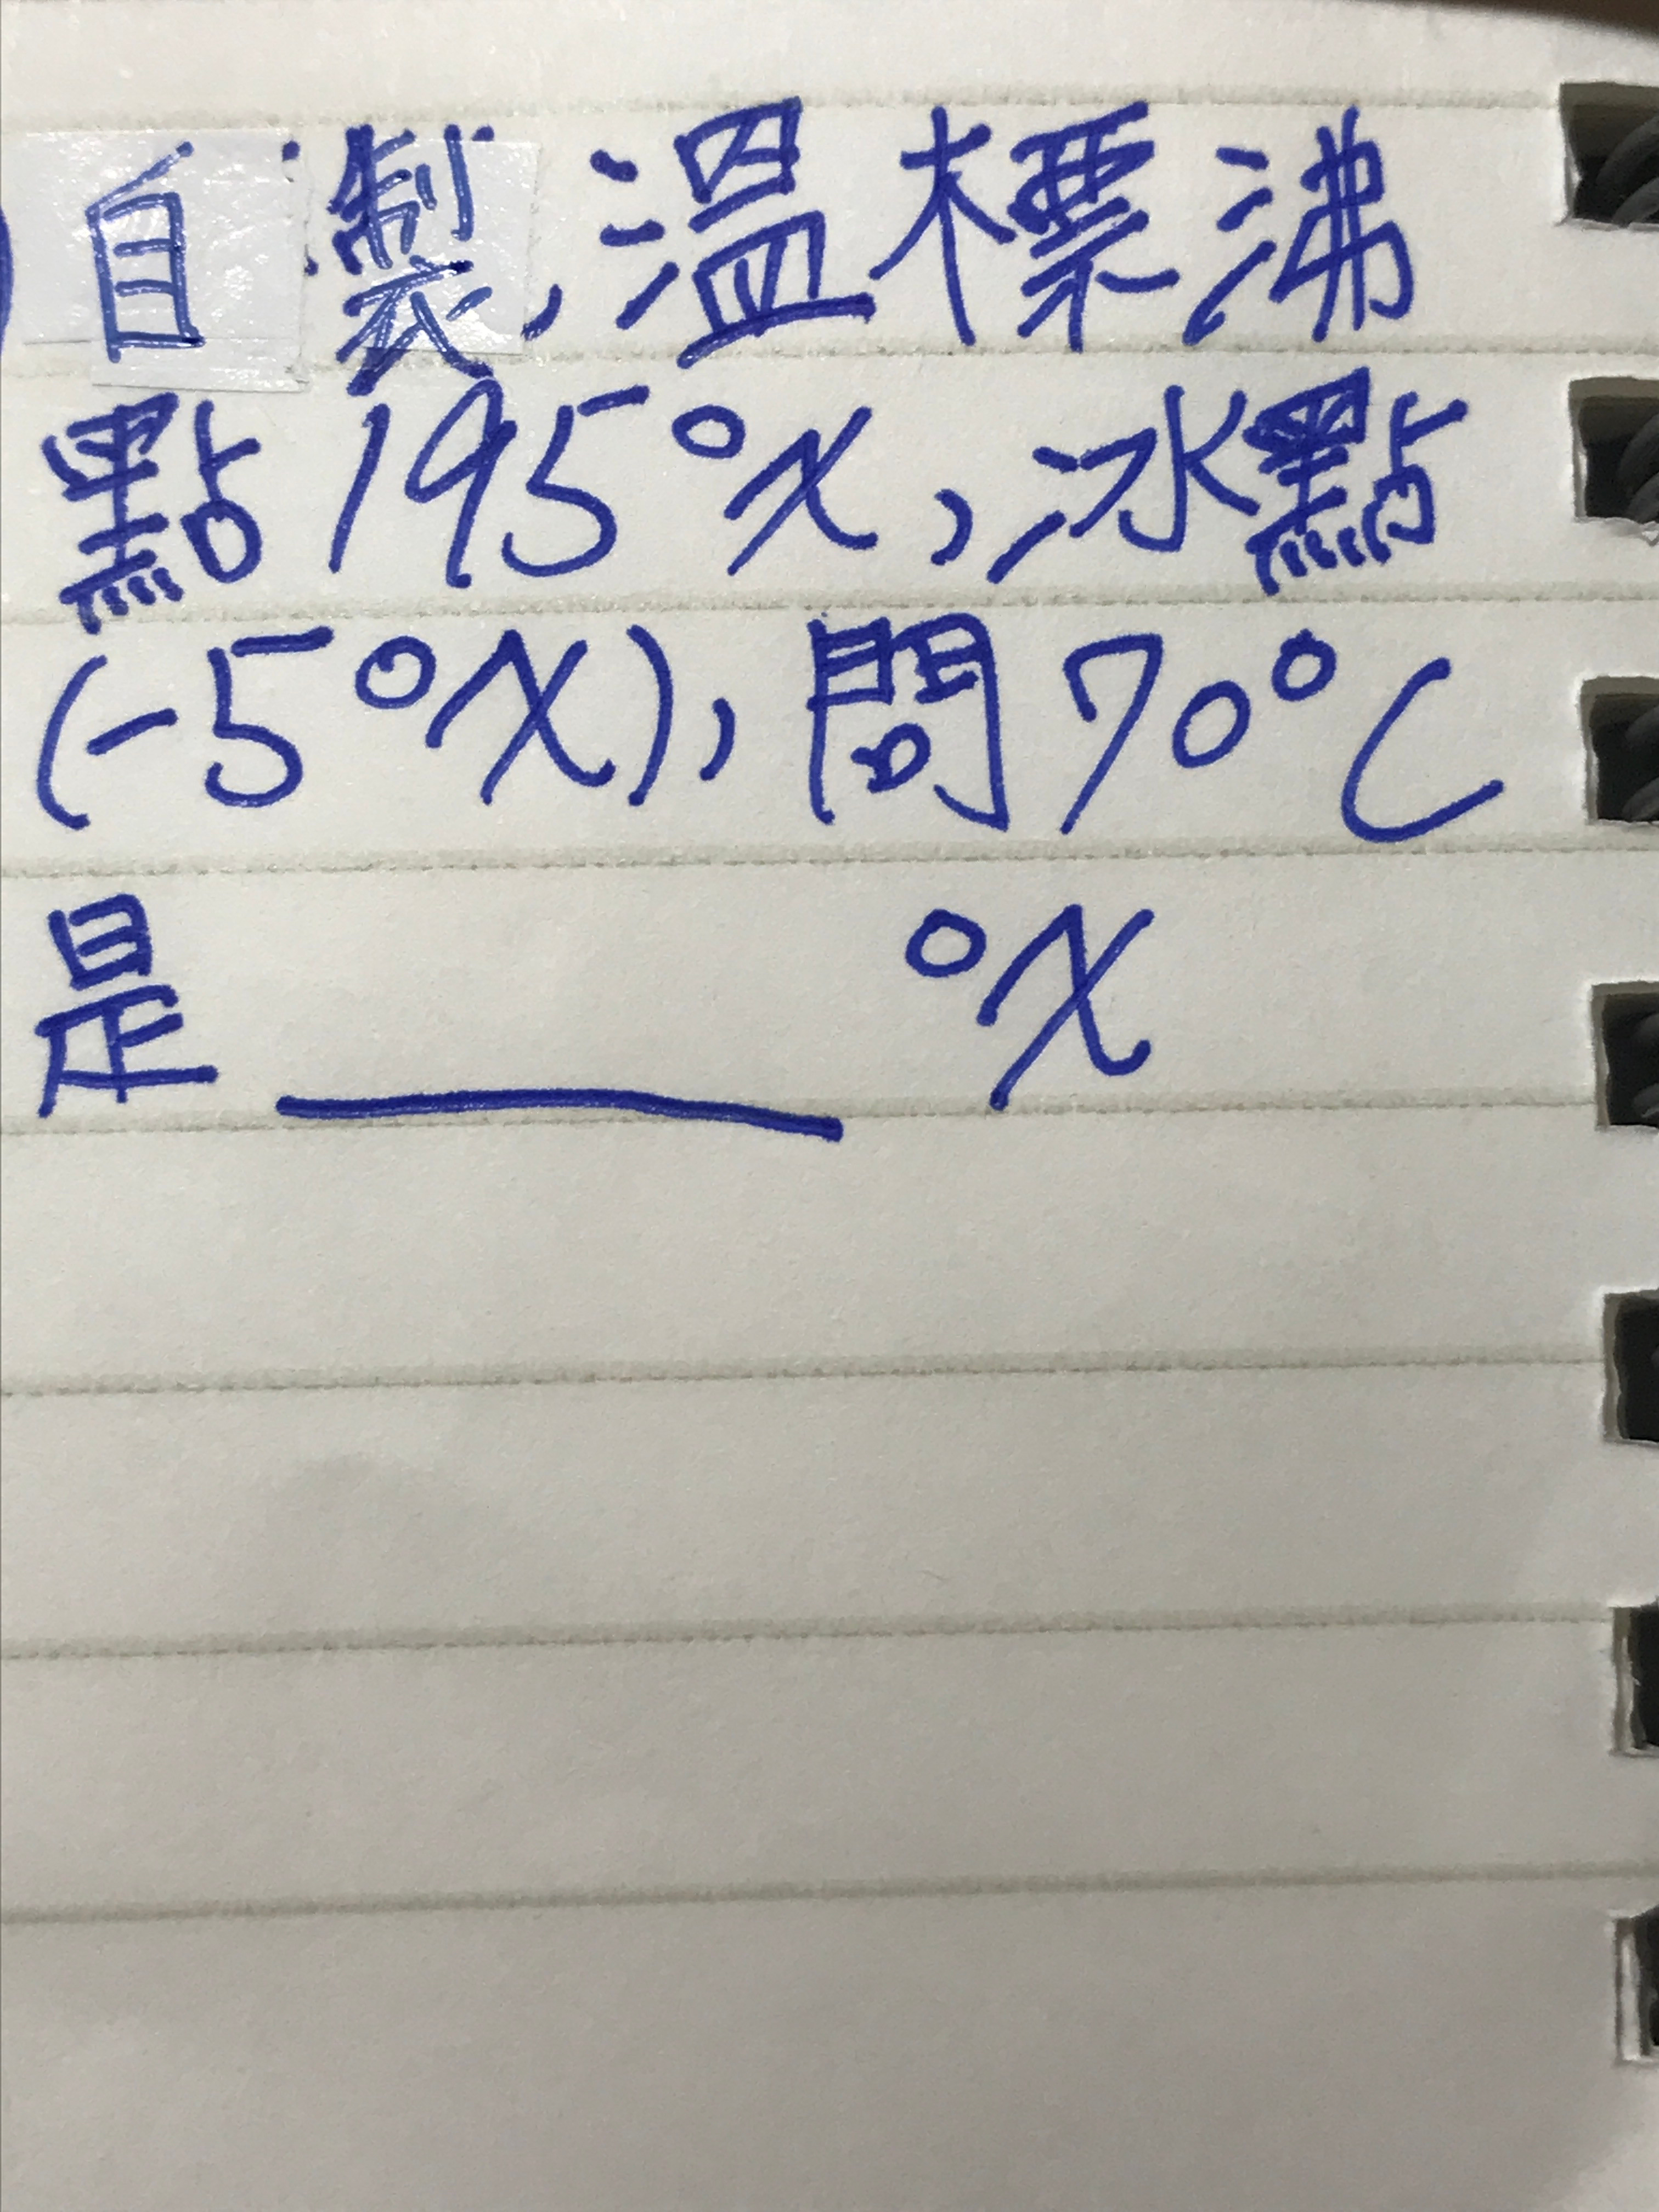 自製,溫標沸
點195°x,冰點
(-5°x),問70°C
是______°x